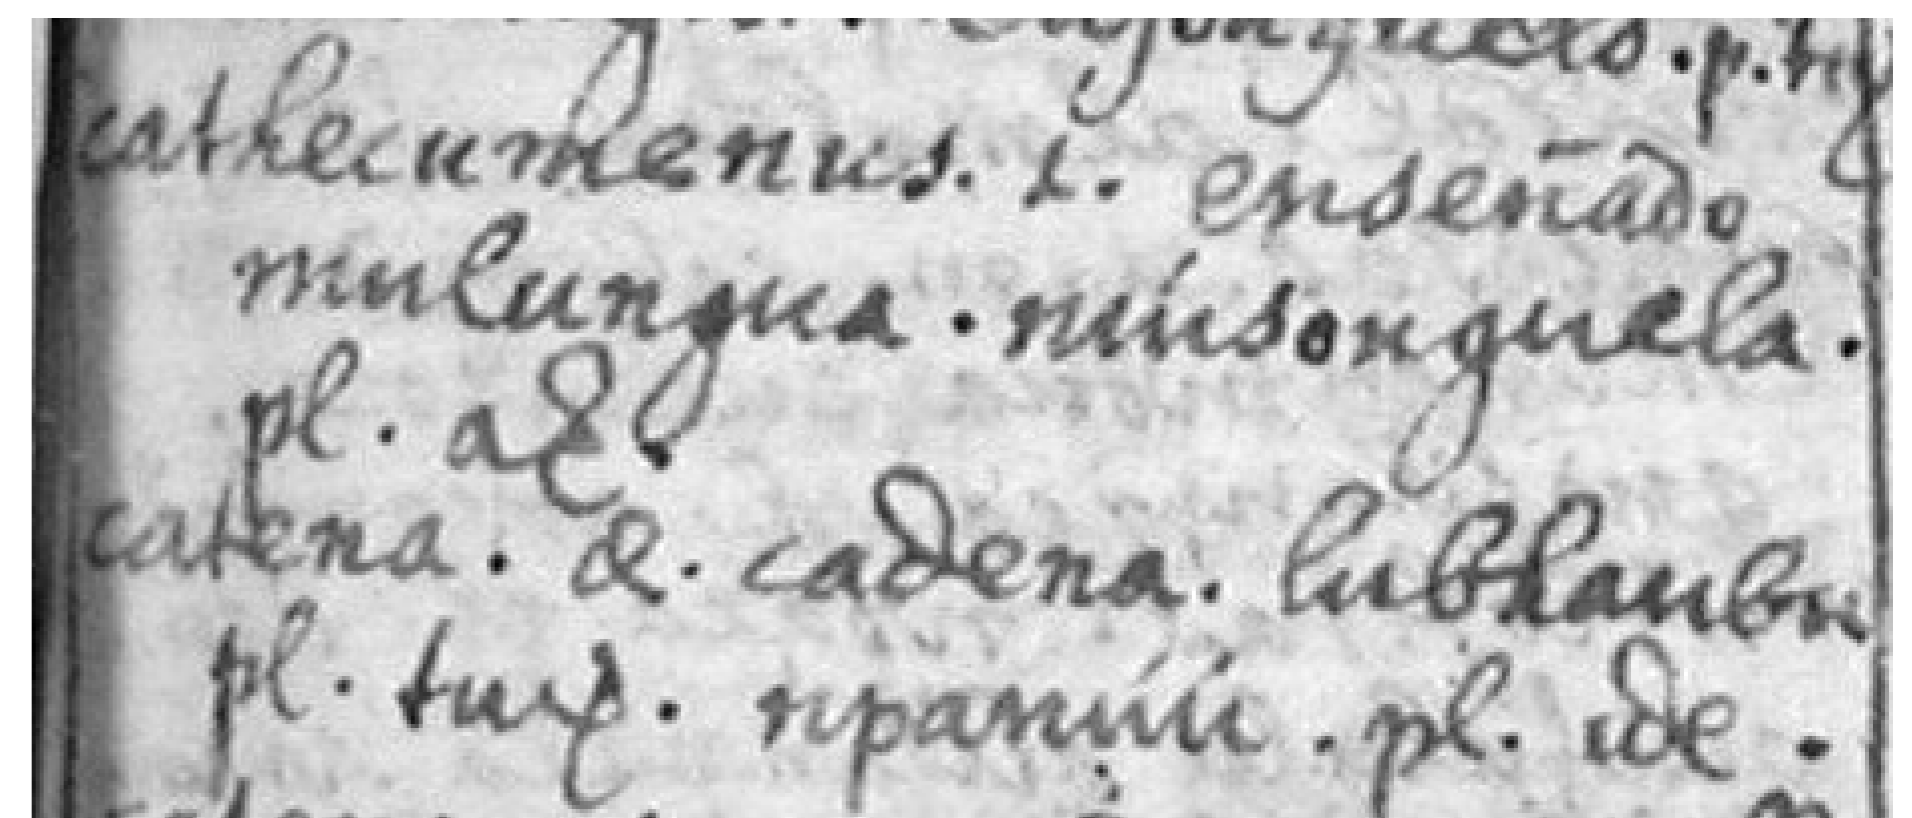 cathecumenus. i. enseñado
mulungua. núsonguela.
pl. a&.
catena. æ. cadena. lubhanbu
pl. tu&. npanúú. pl. ide.